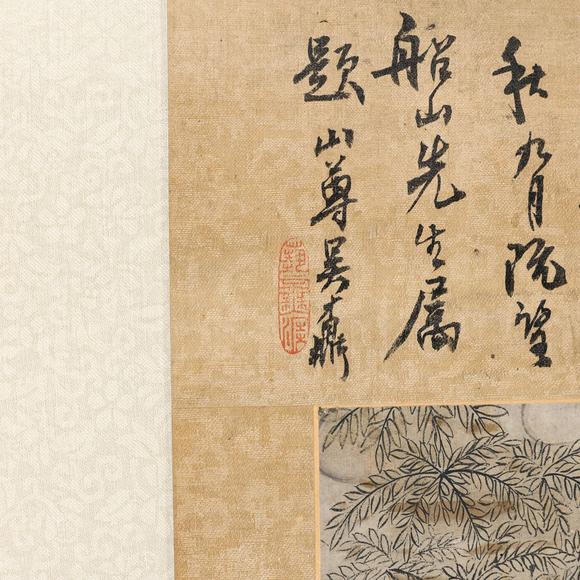 秋九月既望
船山先生属
題 山尊吳鼒